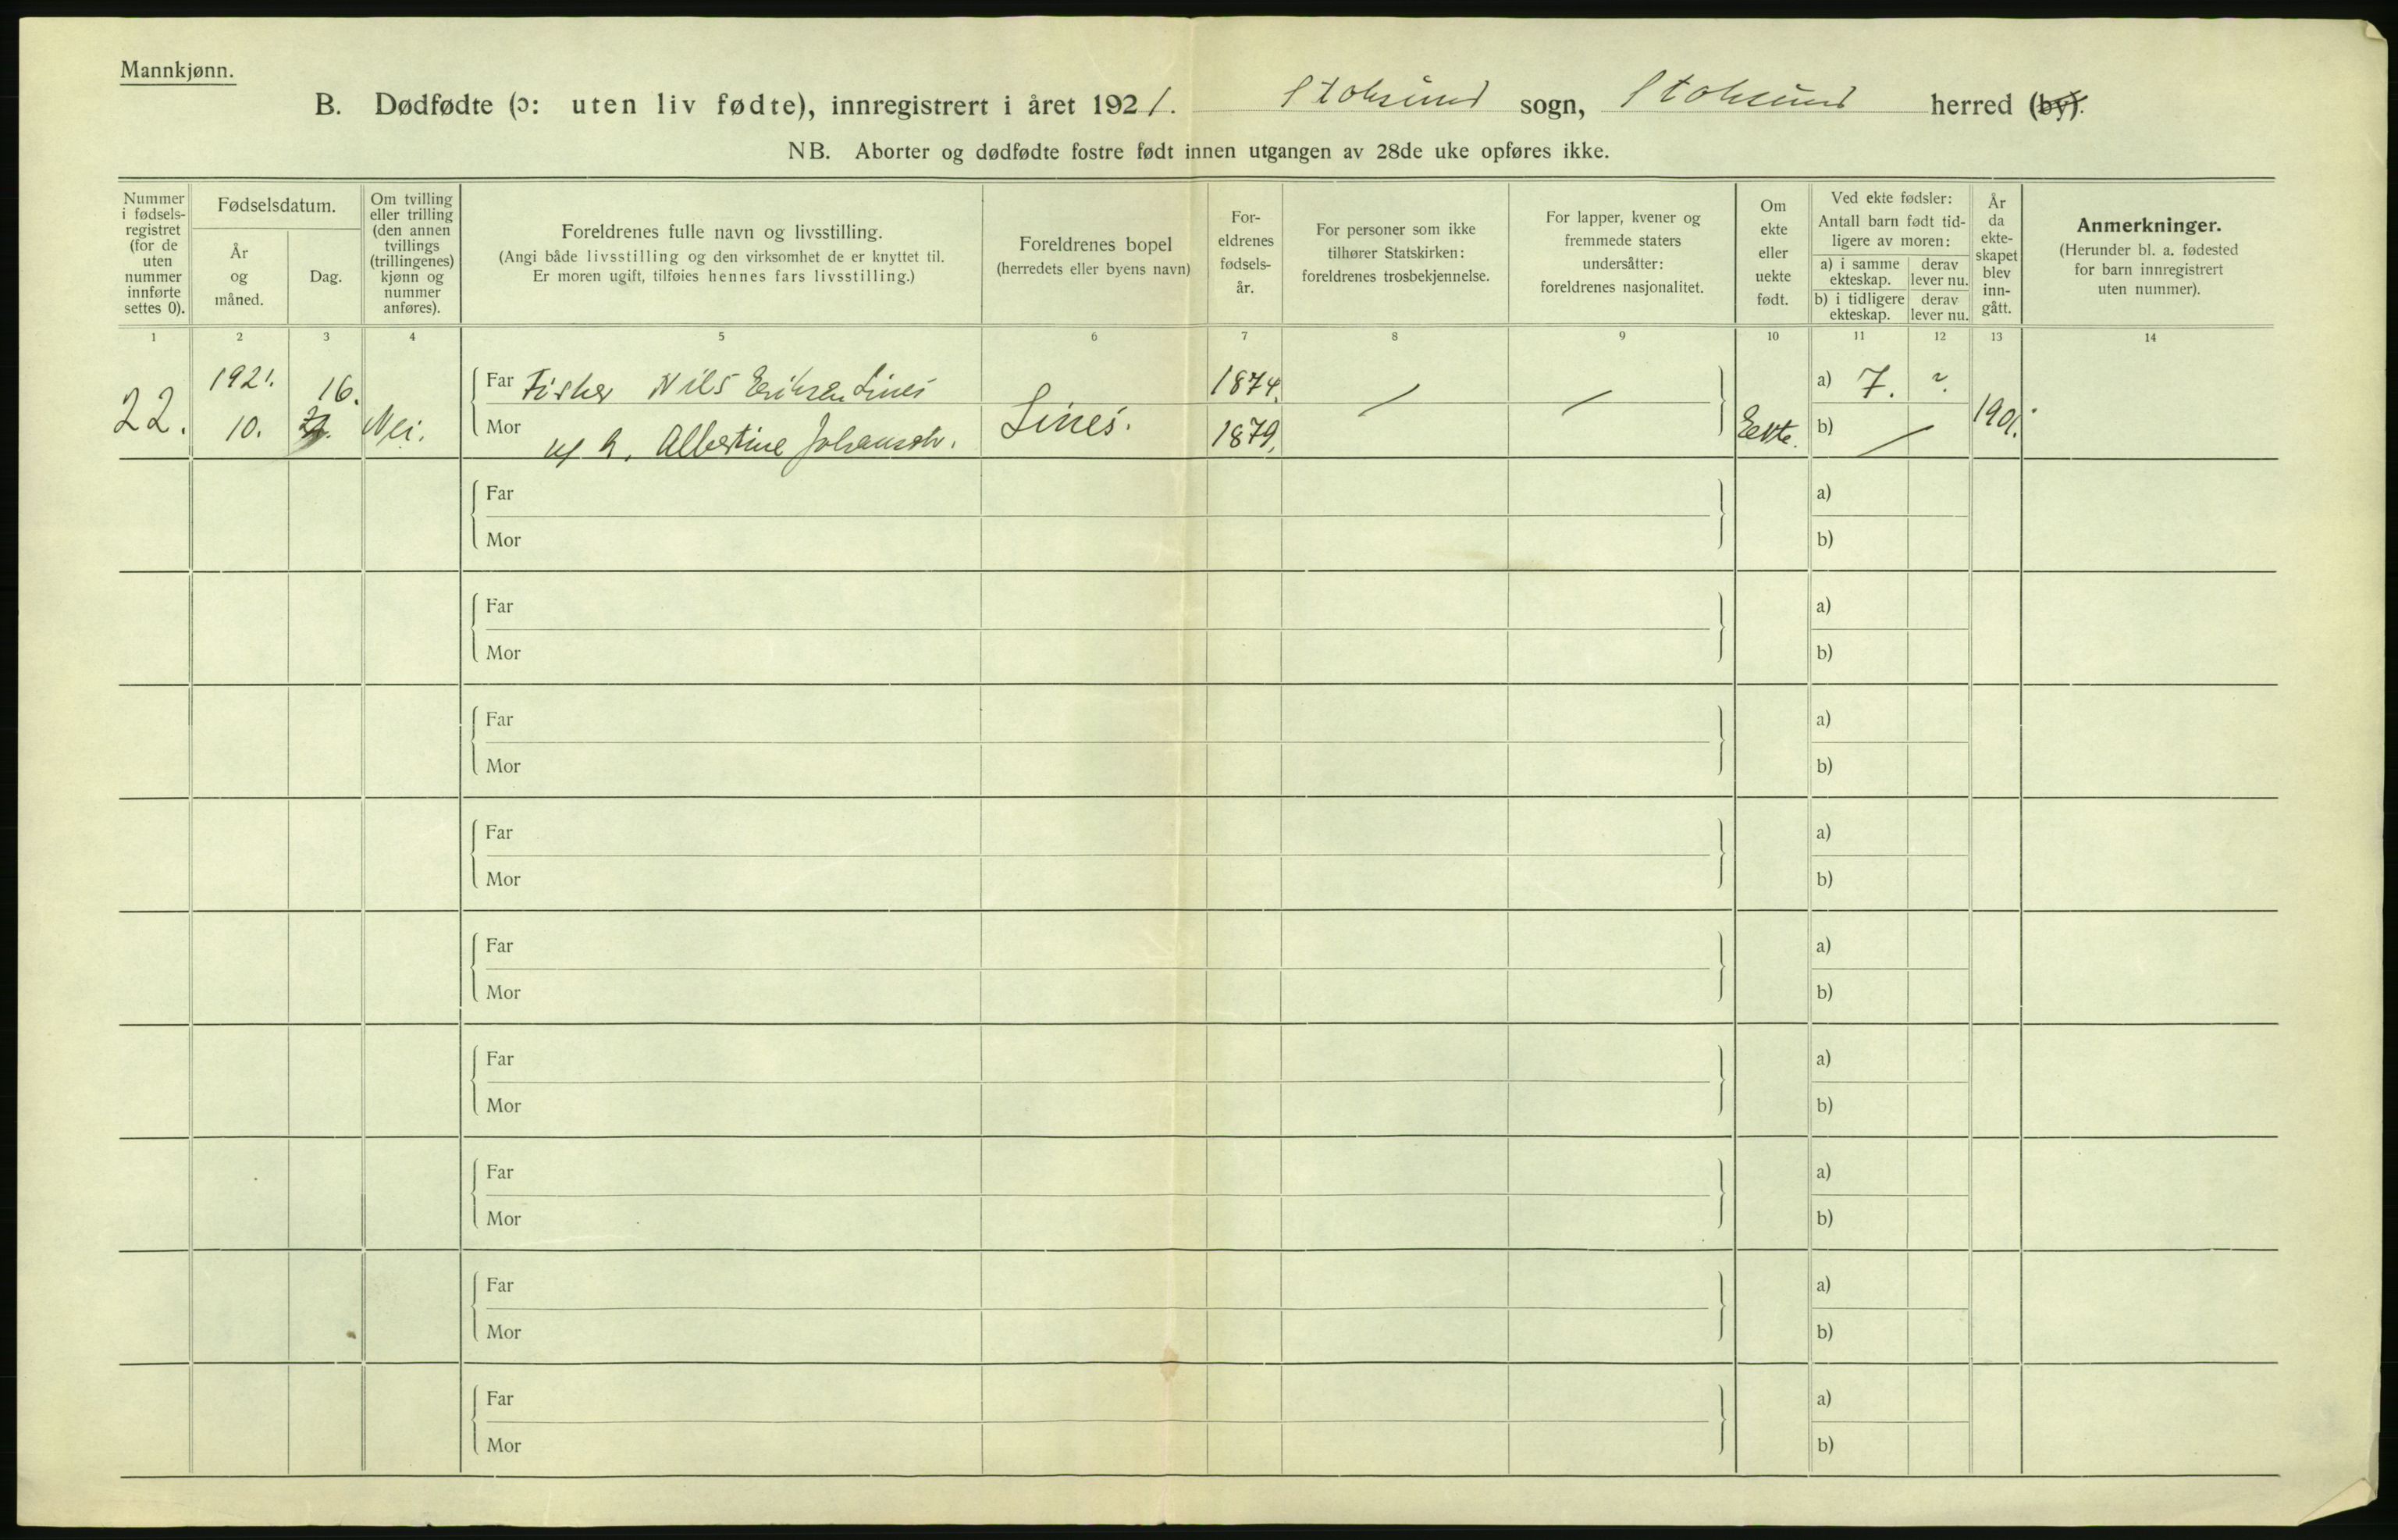 Mannkjønn.
B. Dødfødte (ɔ: uten liv fødte), innregistrert i året 1921. Stoksund sogn, Stoksund herred (by).
NB. Aborter og dødfødte fostre født innen utgangen av 28de uke opføres ikke.
Nummer i fødsels-registret (for de uten nummer innførte settes 0).
Fødselsdatum.
År og måned.
Dag.
Om tvilling eller trilling (den annen tvillings (trillingenes) kjønn og nummer anføres).
Foreldrenes fulle navn og livsstilling.
(Angi både livsstilling og den virksomhet de er knyttet til.
Er moren ugift, tilføies hennes fars livsstilling.)
Foreldrenes bopel
(herredets eller byens navn)
For-eldrenes fødsels-år.
For personer som ikke tilhører Statskirken: foreldrenes trosbekjennelse.
For lapper, kvener og fremmede staters undersåtter: foreldrenes nasjonalitet.
Om ekte eller uekte født.
Ved ekte fødsler:
Antall barn født tid-ligere av moren:
a) i samme ekteskap.
derav lever nu.
b) i tidligere ekteskap.
derav lever nu.
År da ekte-skapet blev inn-gått.
Anmerkninger.
(Herunder bl. a. fødested for barn innregistrert uten nummer).
1 2 3 4 5 6 7 8 9 10 11 12 13 14
22. 1921. 10. 16. Nei.
Far Fisker Nils Eriksen Lines
Mor h. Albertine Johansdtr.
Lines.
1874.
1879.
Eekte.
a) 7.
b)
1901.
Far a)
Mor b)
Far a)
Mor b)
Far a)
Mor b)
Far a)
Mor b)
Far a)
Mor b)
Far a)
Mor b)
Far a)
Mor b)
Far a)
Mor b)
Far a)
Mor b)